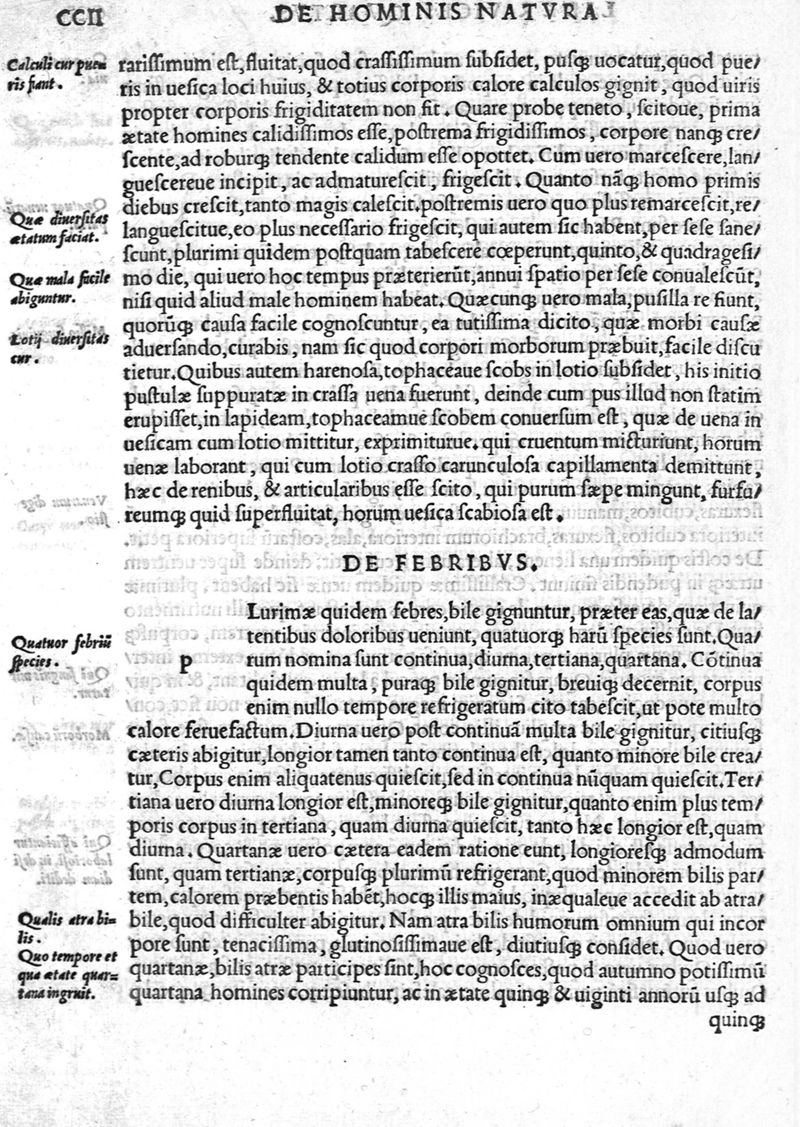 CCII DE HOMINIS NATVRA
Calculi cur pue⸗
ris fiant.
rarissimum est, fluitat, quod crassissimum subsidet, pusq́; uocatur, quod pue/
ris in uesica loci huius, & totius corporis calore calculos gignit, quod uiris
propter corporis frigiditatem non fit. Quare probe teneto, scitoue, prima
ætate homines calidissimos esse, postrema frigidissimos, corpore nanq́; cre/
scente, ad roburq́; tendente calidum esse opottet. Cum uero marcescere, lan/
guescereue incipit, ac admaturescit, frigescit. Quanto nãq́; homo primis
Quæ diuersitas
ætatum faciat.
diebus crescit, tanto magis calescit. postremis uero quo plus remarcescit, re/
languescitue, eo plus necessario frigescit, qui autem sic habent, per sese sane/
scunt, plurimi quidem postquam tabescere cœperunt, quinto, & quadragesi/
Quæ mala facile
abiguntur.
mo die, qui uero hoc tempus præterierũt, annui spatio per sese conualescũt,
nisi quid aliud male hominem habeat. Quæcunq́; uero mala, pusilla re fiunt,
quorũq́; causa facile cognoscuntur, ea tutissima dicito, quæ morbi causæ
Lotij diuersitas
cur.
aduersando, curabis, nam sic quod corpori morborum præbuit, facile discu
tietur. Quibus autem harenosa, tophaceaue scobs in lotio subsidet, his initio
pustulæ suppuratæ in crassa uena fuerunt, deinde cum pus illud non statim
erupisset, in lapideam, tophaceamue scobem conuersum est, quæ de uena in
uesicam cum lotio mittitur, exprimiturue. qui cruentum micturiunt, horum
uenæ laborant, qui cum lotio crasso carunculosa capillamenta demittunt,
hæc de renibus, & articularibus esse scito, qui purum sæpe mingunt, furfu/
reumq́; quid superfluitat, horum uesica scabiosa est.
DE FEBRIBVS.
Quatuor febriũ
species.
P Lurimæ quidem febres, bile gignuntur, præter eas, quæ de la/
tentibus doloribus ueniunt, quatuorq́; harũ species sunt, Qua/
rum nomina sunt continua, diurna, tertiana, quartana. Cõtinua
quidem multa, puraq́; bile gignitur, breuiq́; decernit, corpus
enim nullo tempore refrigeratum cito tabescit, ut pote multo
calore feruefactum. Diurna uero post continuã multa bile gignitur, citiusq́;
cæteris abigitur, longior tamen tanto continua est, quanto minore bile crea/
tur, Corpus enim aliquatenus quiescit, sed in continua nũquam quiescit. Ter/
tiana uero diurna longior est, minoreq́; bile gignitur, quanto enim plus tem/
poris corpus in tertiana, quam diurna quiescit, tanto hæc longior est, quam
diurna. Quartanæ uero cætera eadem ratione eunt, longioresq́; admodum
sunt, quam tertianæ, corpusq́; plurimũ refrigerant, quod minorem bilis par/
tem, calorem præbentis habẽt, hocq́; illis maius, inæqualeue accedit ab atra/
Qualis atra bi⸗
lis.
bile, quod difficulter abigitur. Nam atra bilis humorum omnium qui incor
pore sunt, tenacissima, glutinosissimaue est, diutiusq́; considet. Quod uero
Quo tempore et
qua ætate quar⸗
tana ingruit.
quartanæ, bilis atræ participes sint, hoc cognosces, quod autumno potissimũ
quartana homines corripiuntur, ac in ætate quinq́; & uiginti annorũ usq́; ad
quinq́;